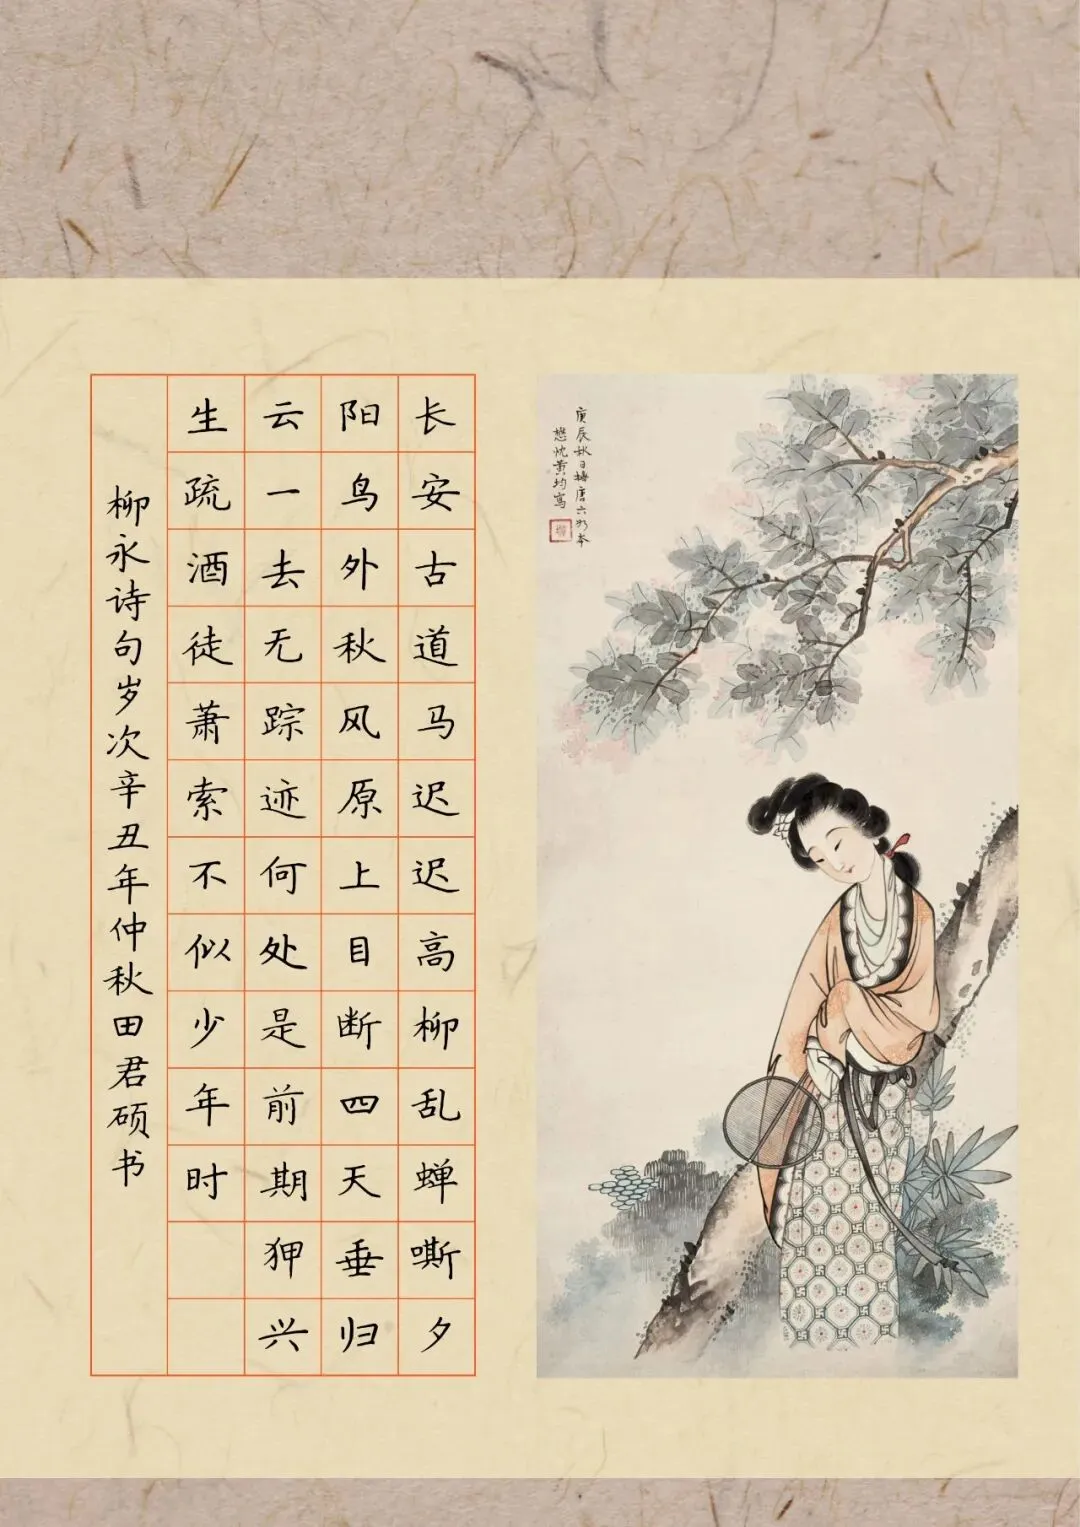 庚辰秋日唐六如本
懋忱黄均写
长安古道马迟迟高柳乱蝉嘶夕
阳鸟外秋风原上目断四天垂归
云一去无踪迹何处是前期狎兴
生疏酒徒萧索不似少年时
柳永诗句岁次辛丑年仲秋田君硕书